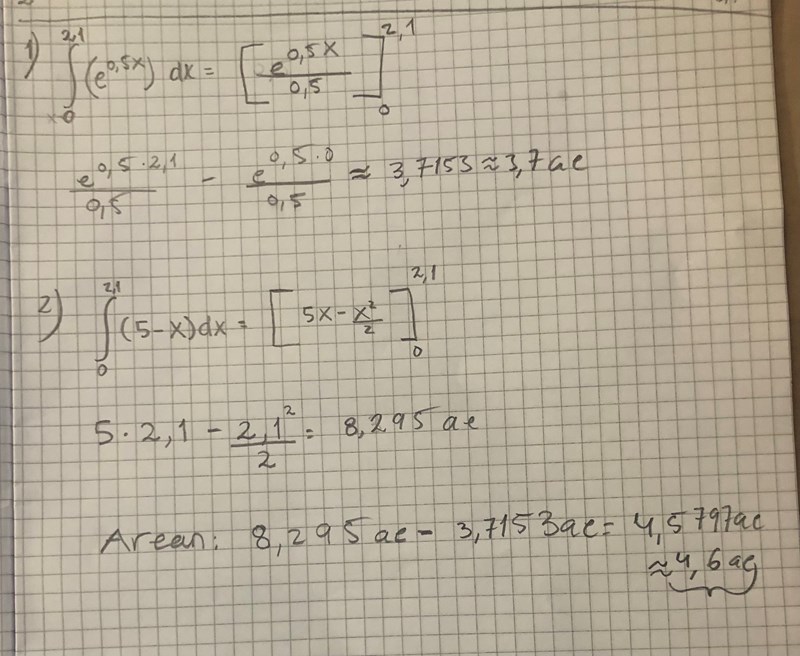 1) ∫₀^2,1 (e^0,5x) dx = [e^0,5x / 0,5]₀^2,1
e^0,5·2,1 / 0,5 - e^0,5·0 / 0,5 ≈ 3,7153 ≈ 3,7 ae
2) ∫₀^2,1 (5-x)dx = [5x - x²/2]₀^2,1
5·2,1 - 2,1²/2 = 8,295 ae
Arean: 8,295 ae - 3,7153 ae = 4,5797 ae
≈ 4,6 ae